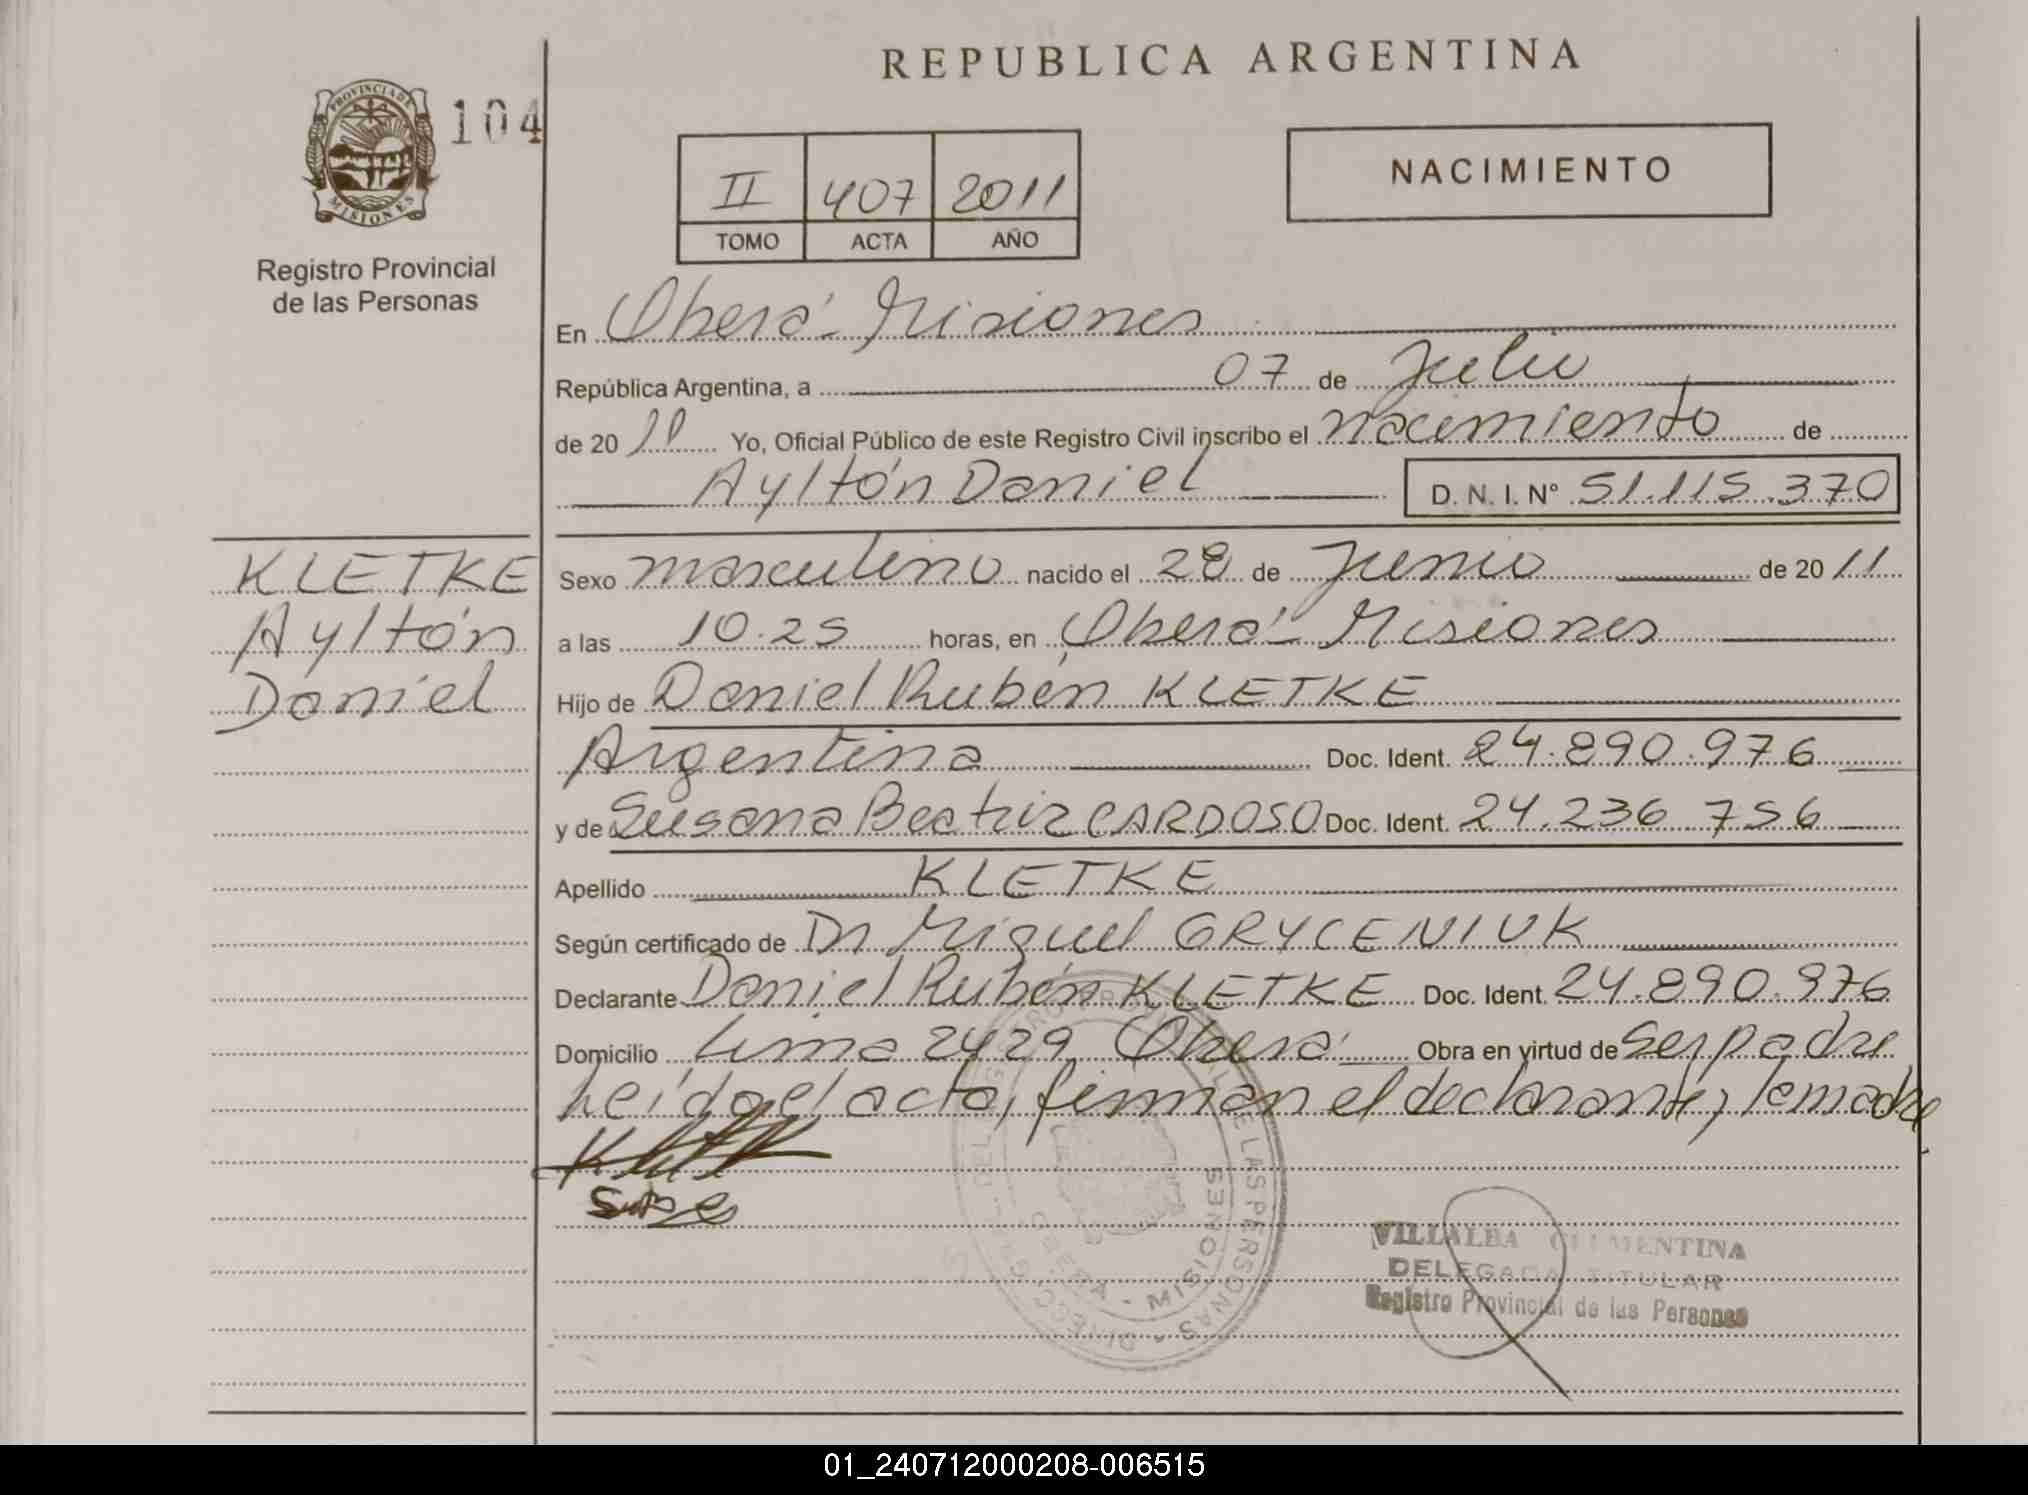 REPUBLICA ARGENTINA
PROVINCIA DE
MISIONES
104
Registro Provincial
de las Personas
II 407 2011
TOMO ACTA AÑO
NACIMIENTO
En Oberá - Misiones
República Argentina, a 07 de Julio
de 20 11 Yo, Oficial Público de este Registro Civil inscribo el nacimiento de
Ayltón Daniel D. N. I. N° 51.115.370
KLETKE
Ayltón
Daniel
Sexo masculino nacido el 28 de Junio de 20 11
a las 10.25 horas, en Oberá - Misiones
Hijo de Daniel Rubén KLETKE
Argentina Doc. Ident. 24.890.976
y de Susana Beatriz CARDOSO Doc. Ident. 24.236 756
Apellido KLETKE
Según certificado de Dr Miguel GRYCENIUK
Declarante Daniel Rubén KLETKE Doc. Ident. 24.890.976
Domicilio Lima 2429 Oberá Obra en virtud de ser padre
Leído el acta, firman el declarante y la madre
OBERA - MISIONES
VILLALBA CLEMENTINA
DELEGADA TITULAR
Registro Provincial de las Personas
01_240712000208-006515